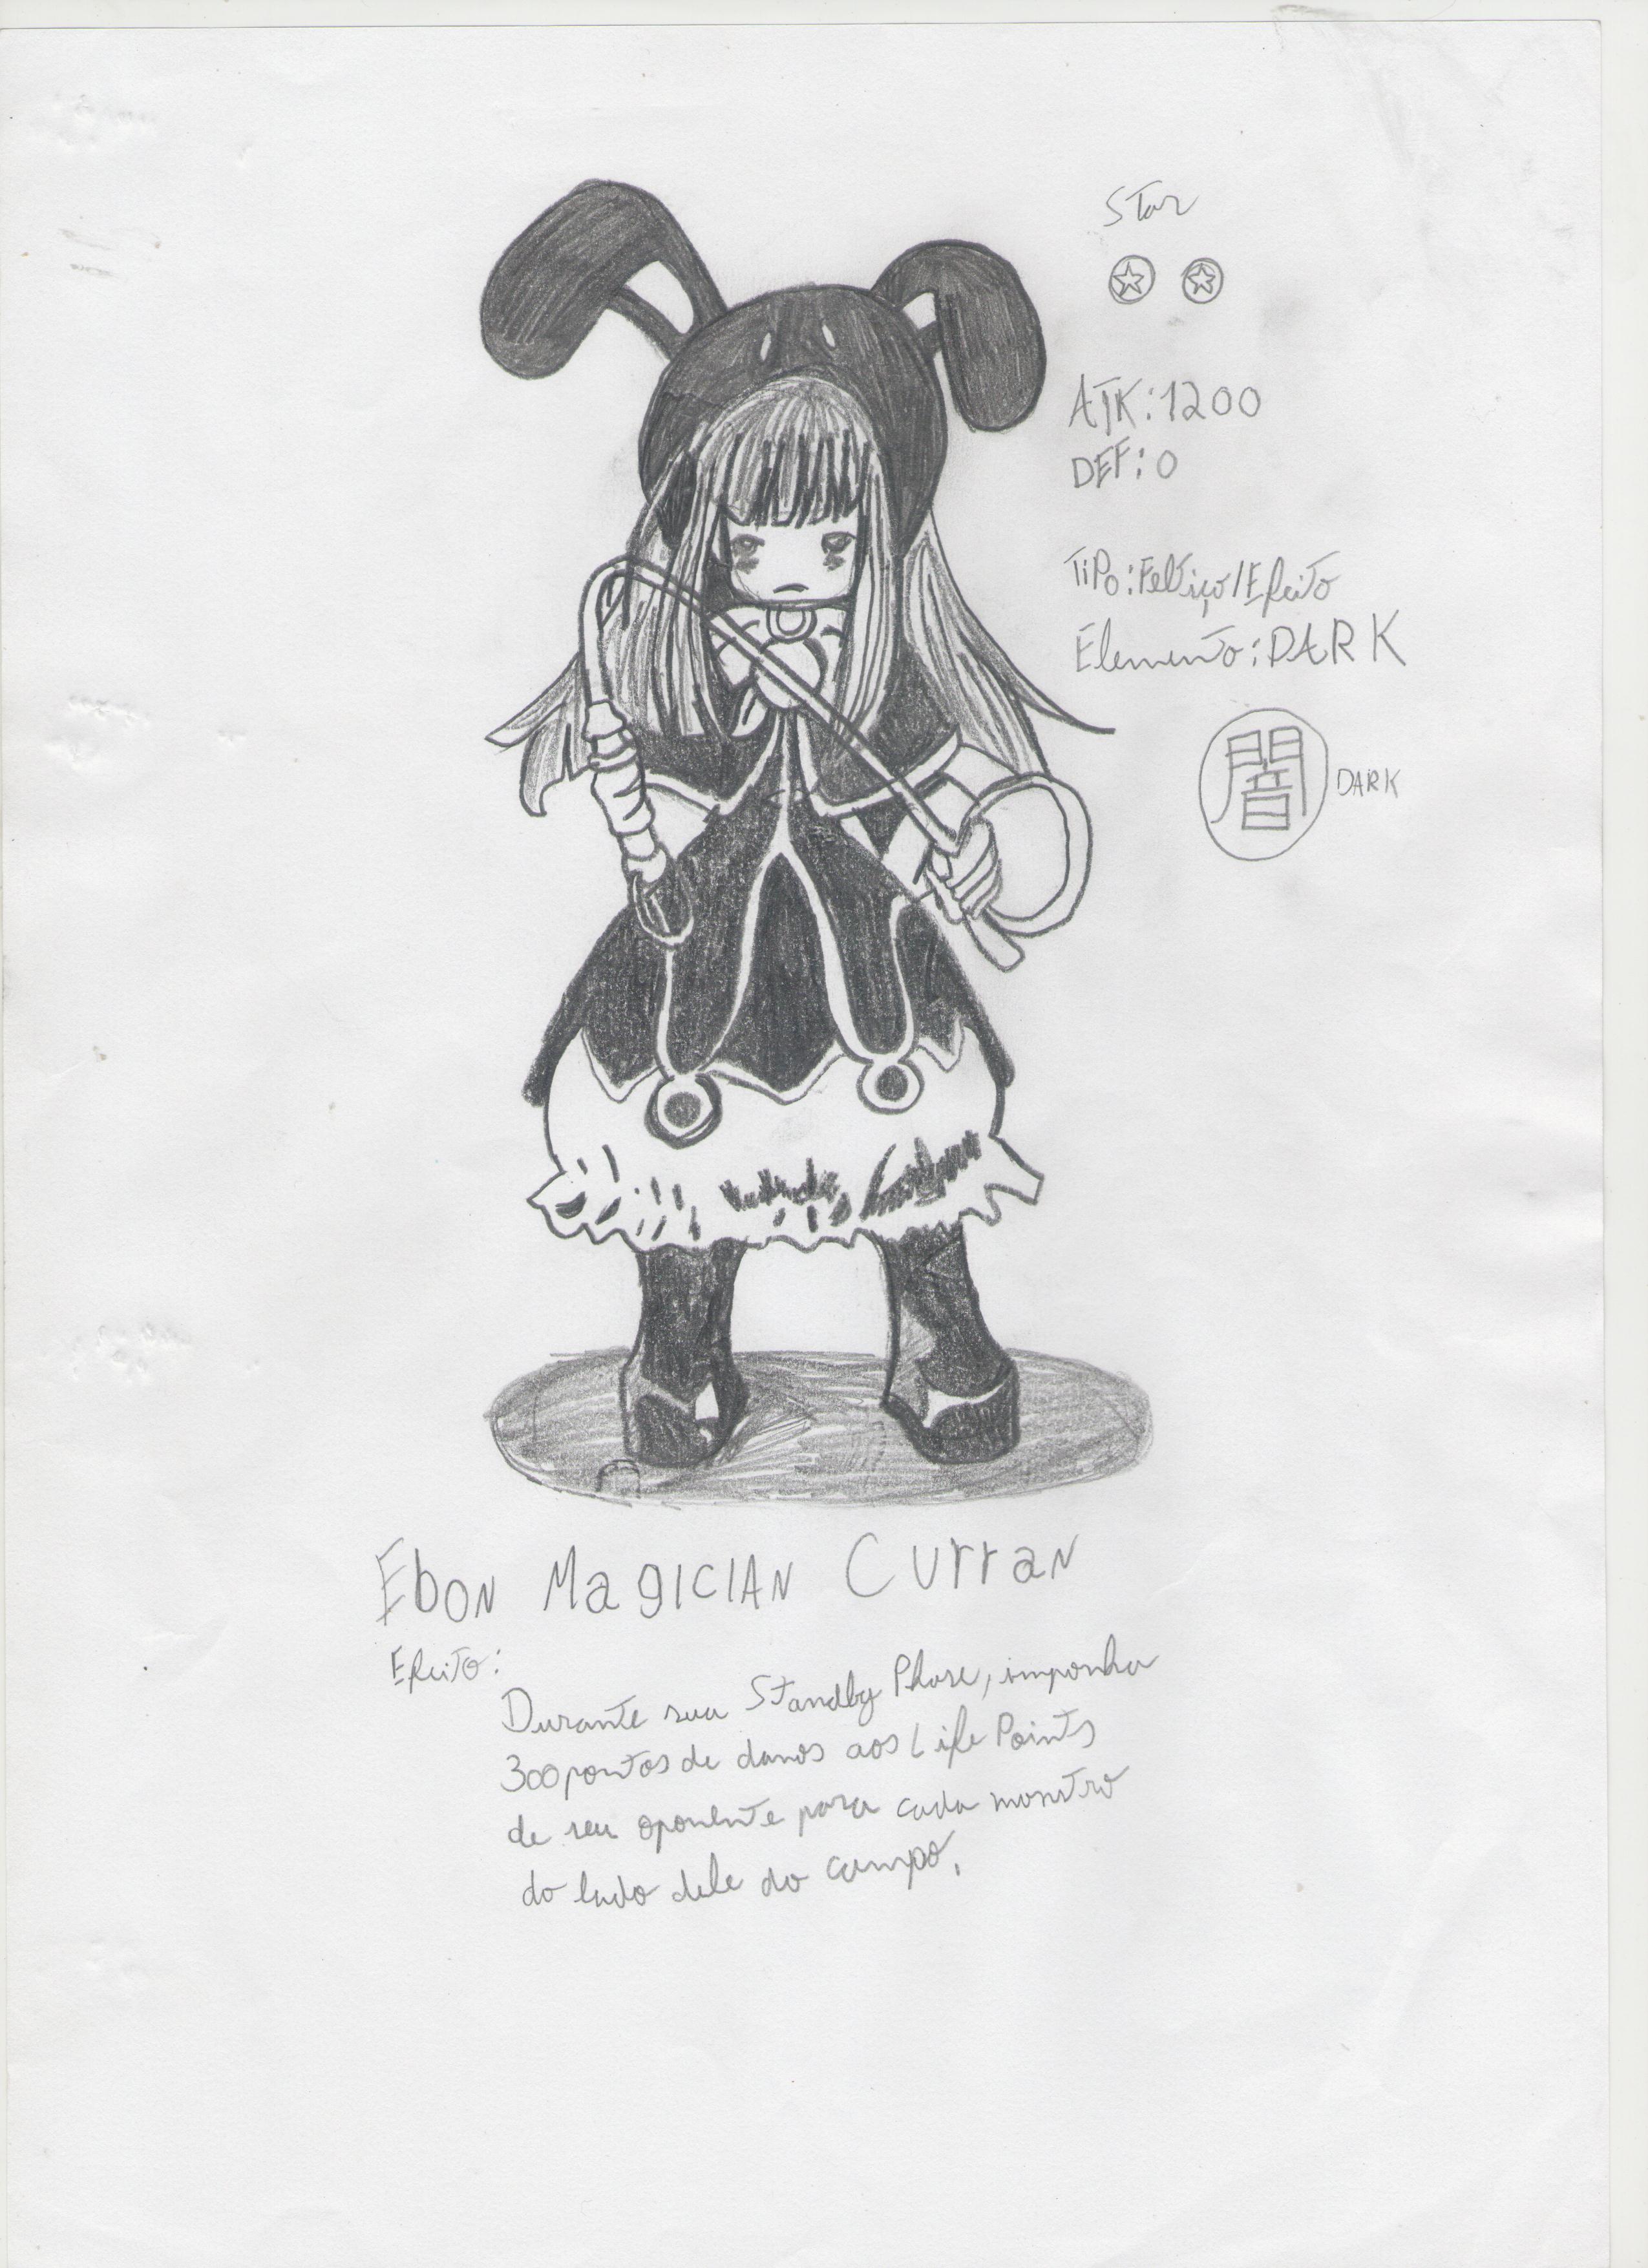 Star
ATK:1200
DEF:0
Tipo:Feitiço/Efeito
Elemento:DARK
闇 DARK
Ebon Magician Curran
Efeito:
Durante sua Standby Phase, imponha
300 pontos de danos aos Life Points
de seu oponente para cada monstro
do lado dele do campo.